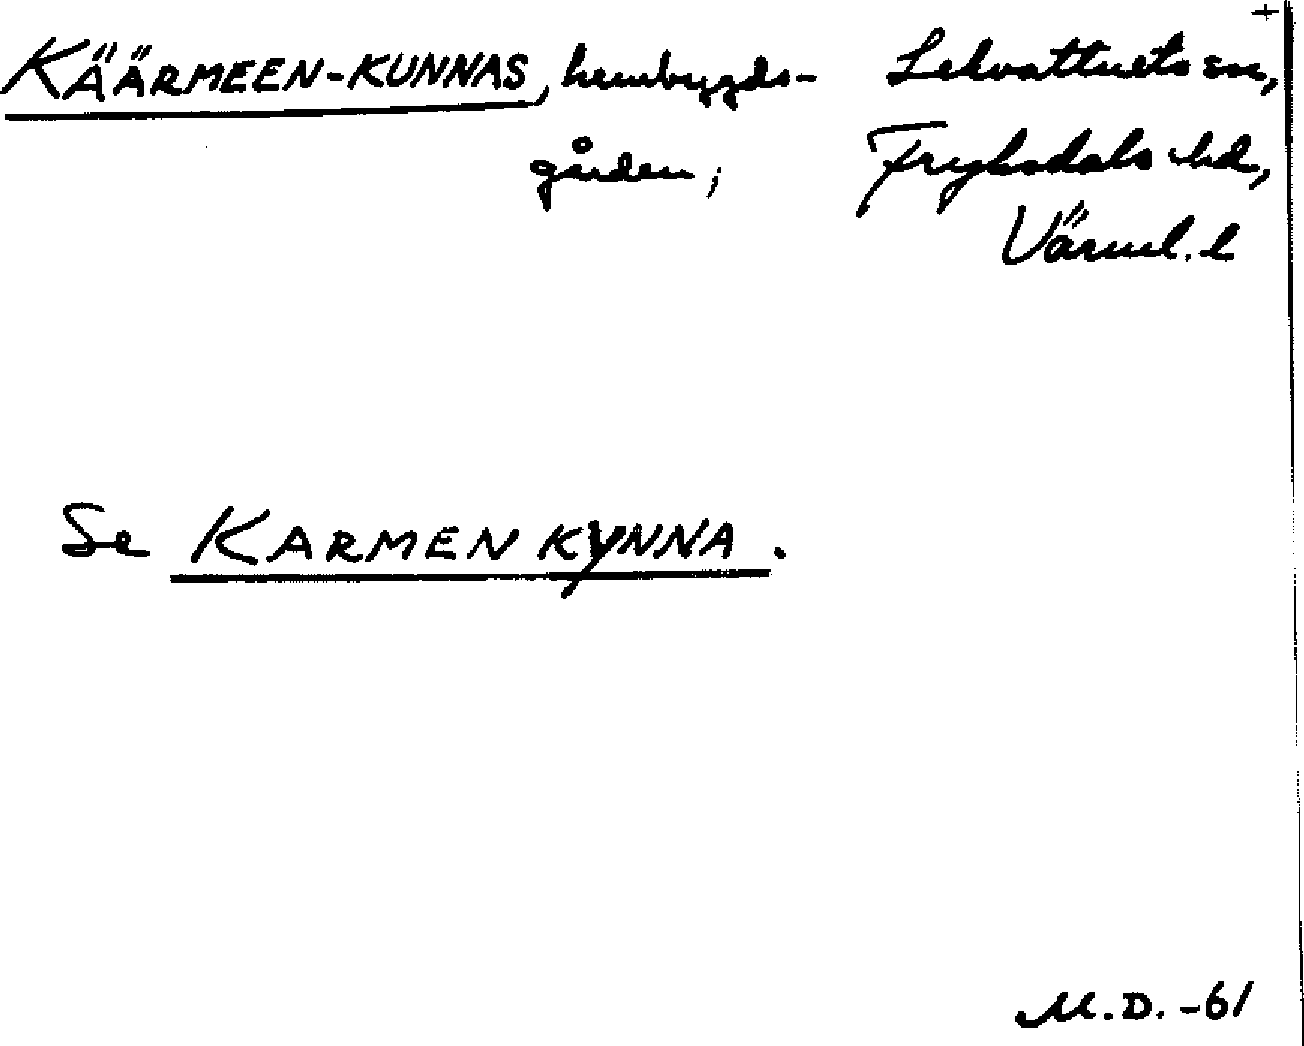 +
KÄÄRMEEN-KUNNAS, hembygds- Lekvattnets sn,
gården; Fryksdals hd,
Värml. l
Se KARMENKYNNA.
M.D. -61